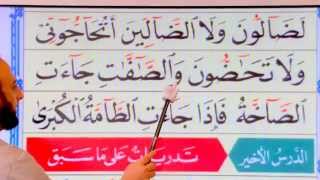 لَضَآلُّونَ وَلَا الضَّآلِّينَ أَتُحَآجُّونِّي
وَلَا تَحَآضُّونَ وَالصَّآفَّاتِ جَآءَتِ
الصَّآخَّةُ فَإِذَا جَآءَتِ الطَّآمَّةُ الْكُبْرَىٰ
الدَّرْسُ الأَخِير تَدرِيبَاتٌ عَلَى مَا سَبَقَ